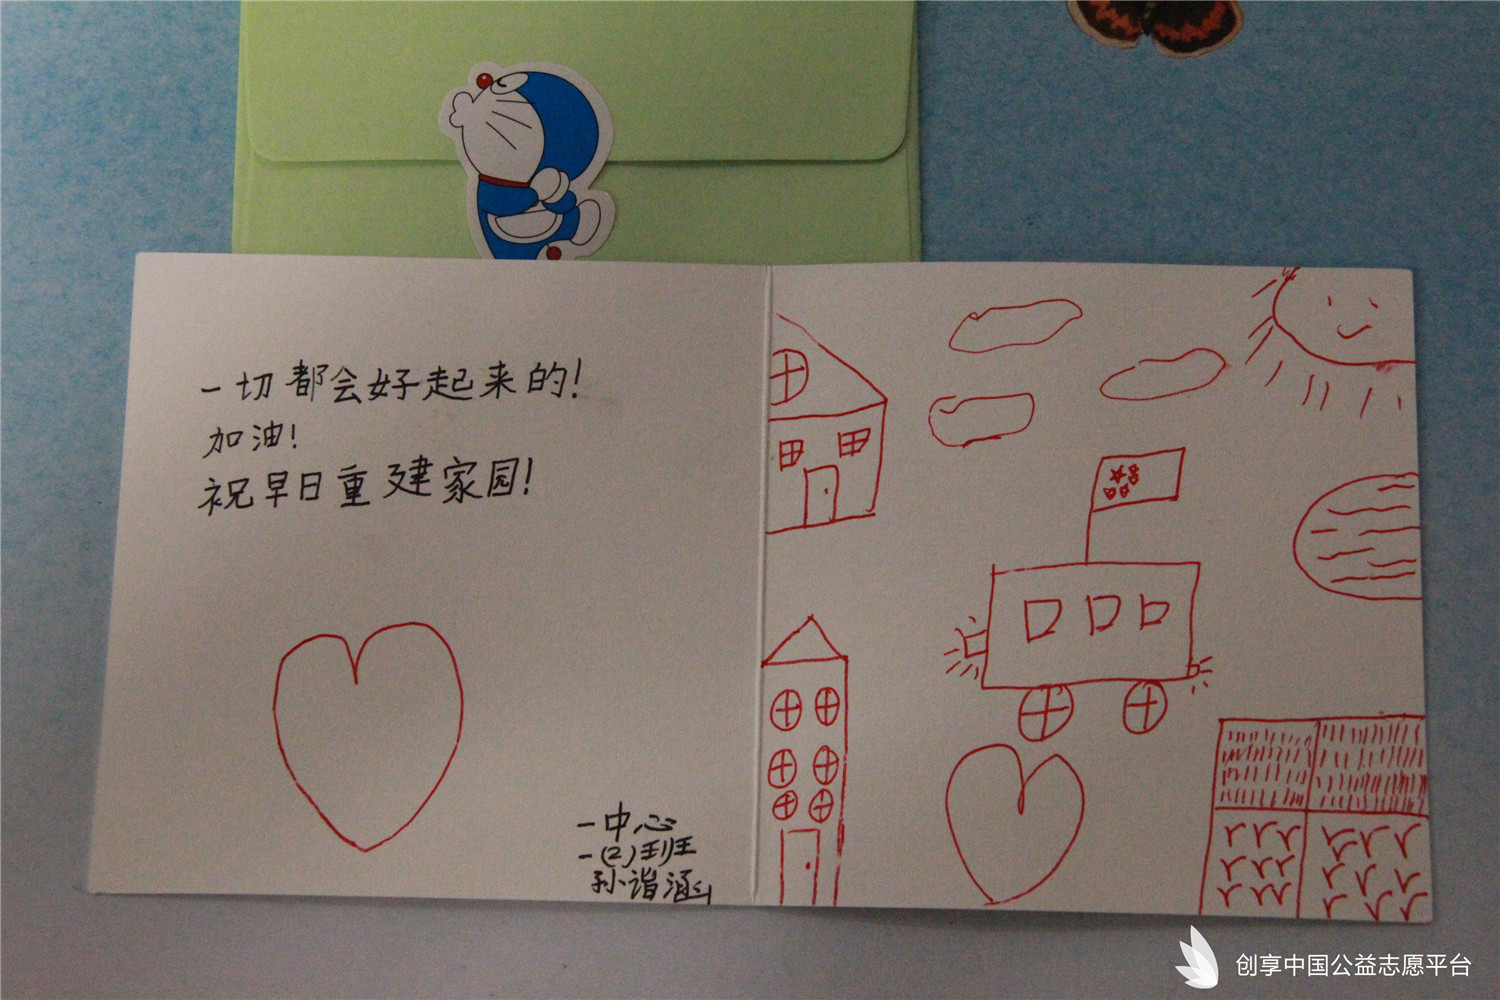 一切都会好起来的!
加油!
祝早日重建家园!
一中心
一(2)班
孙谐涵
创享中国公益志愿平台